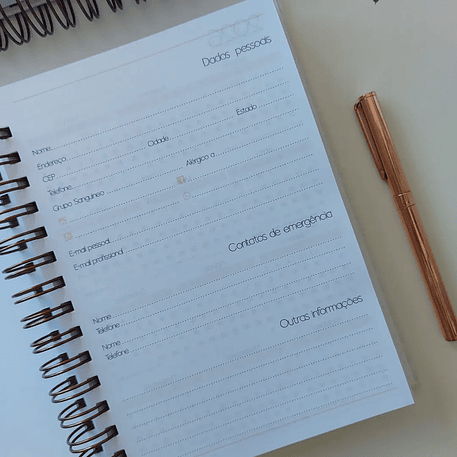 Dados pessoais
Nome
Endereço
Cidade
Estado
CEP
Telefone
Grupo Sanguíneo
Alérgico a
E-mail pessoal
E-mail profissional
Contatos de emergência
Nome
Telefone
Nome
Telefone
Outras informações